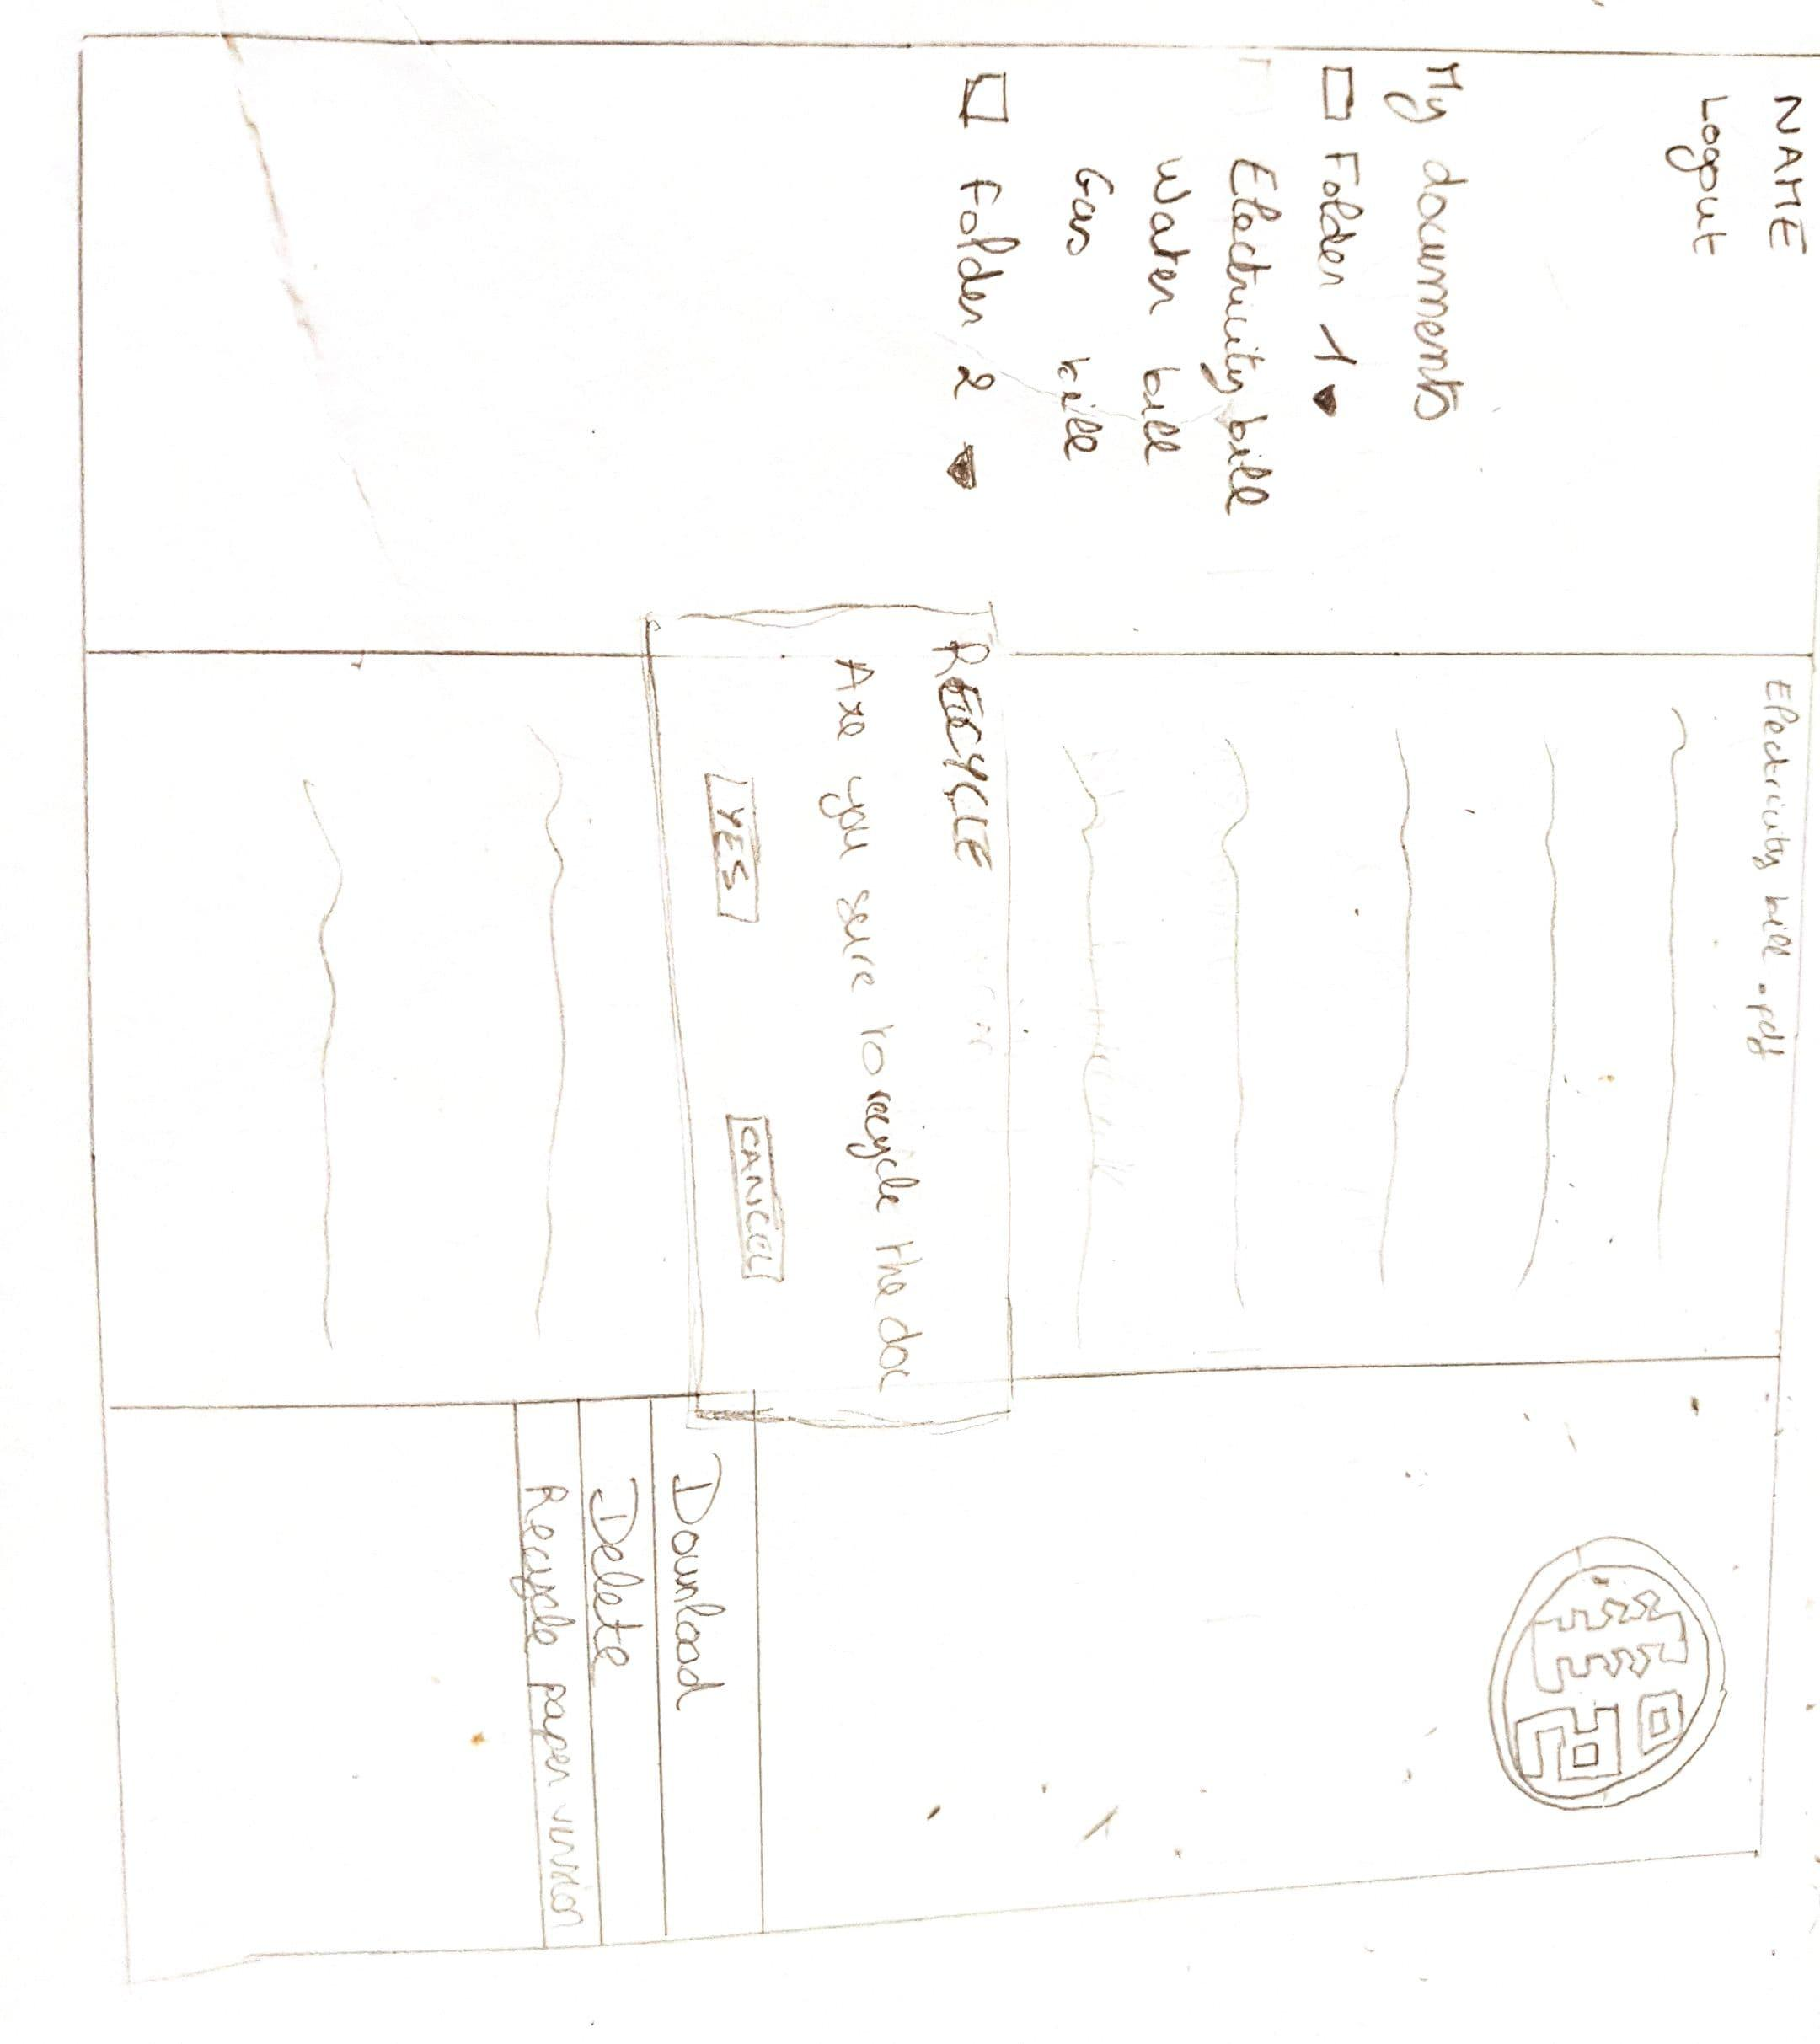 NAME
Logout
My documents
Folder 1
Electricity bill
Water bill
Gas bill
Folder 2
Electricity bill .pdf
RECYCLE
Are you sure to recycle the doc
YES
CANCEL
Download
Delete
Recycle paper version